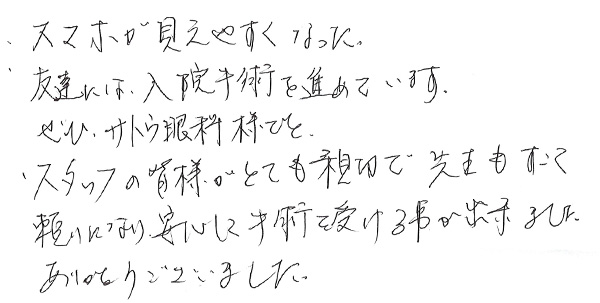 、スマホが見えやすくなった。
、友達には、入院手術を進めています。
ぜひ、サトウ眼科様でと。
、スタッフの皆様がとても親切で先生もすごく
頼りになり、安心して手術を受ける事が出来ました
ありがとうございました。